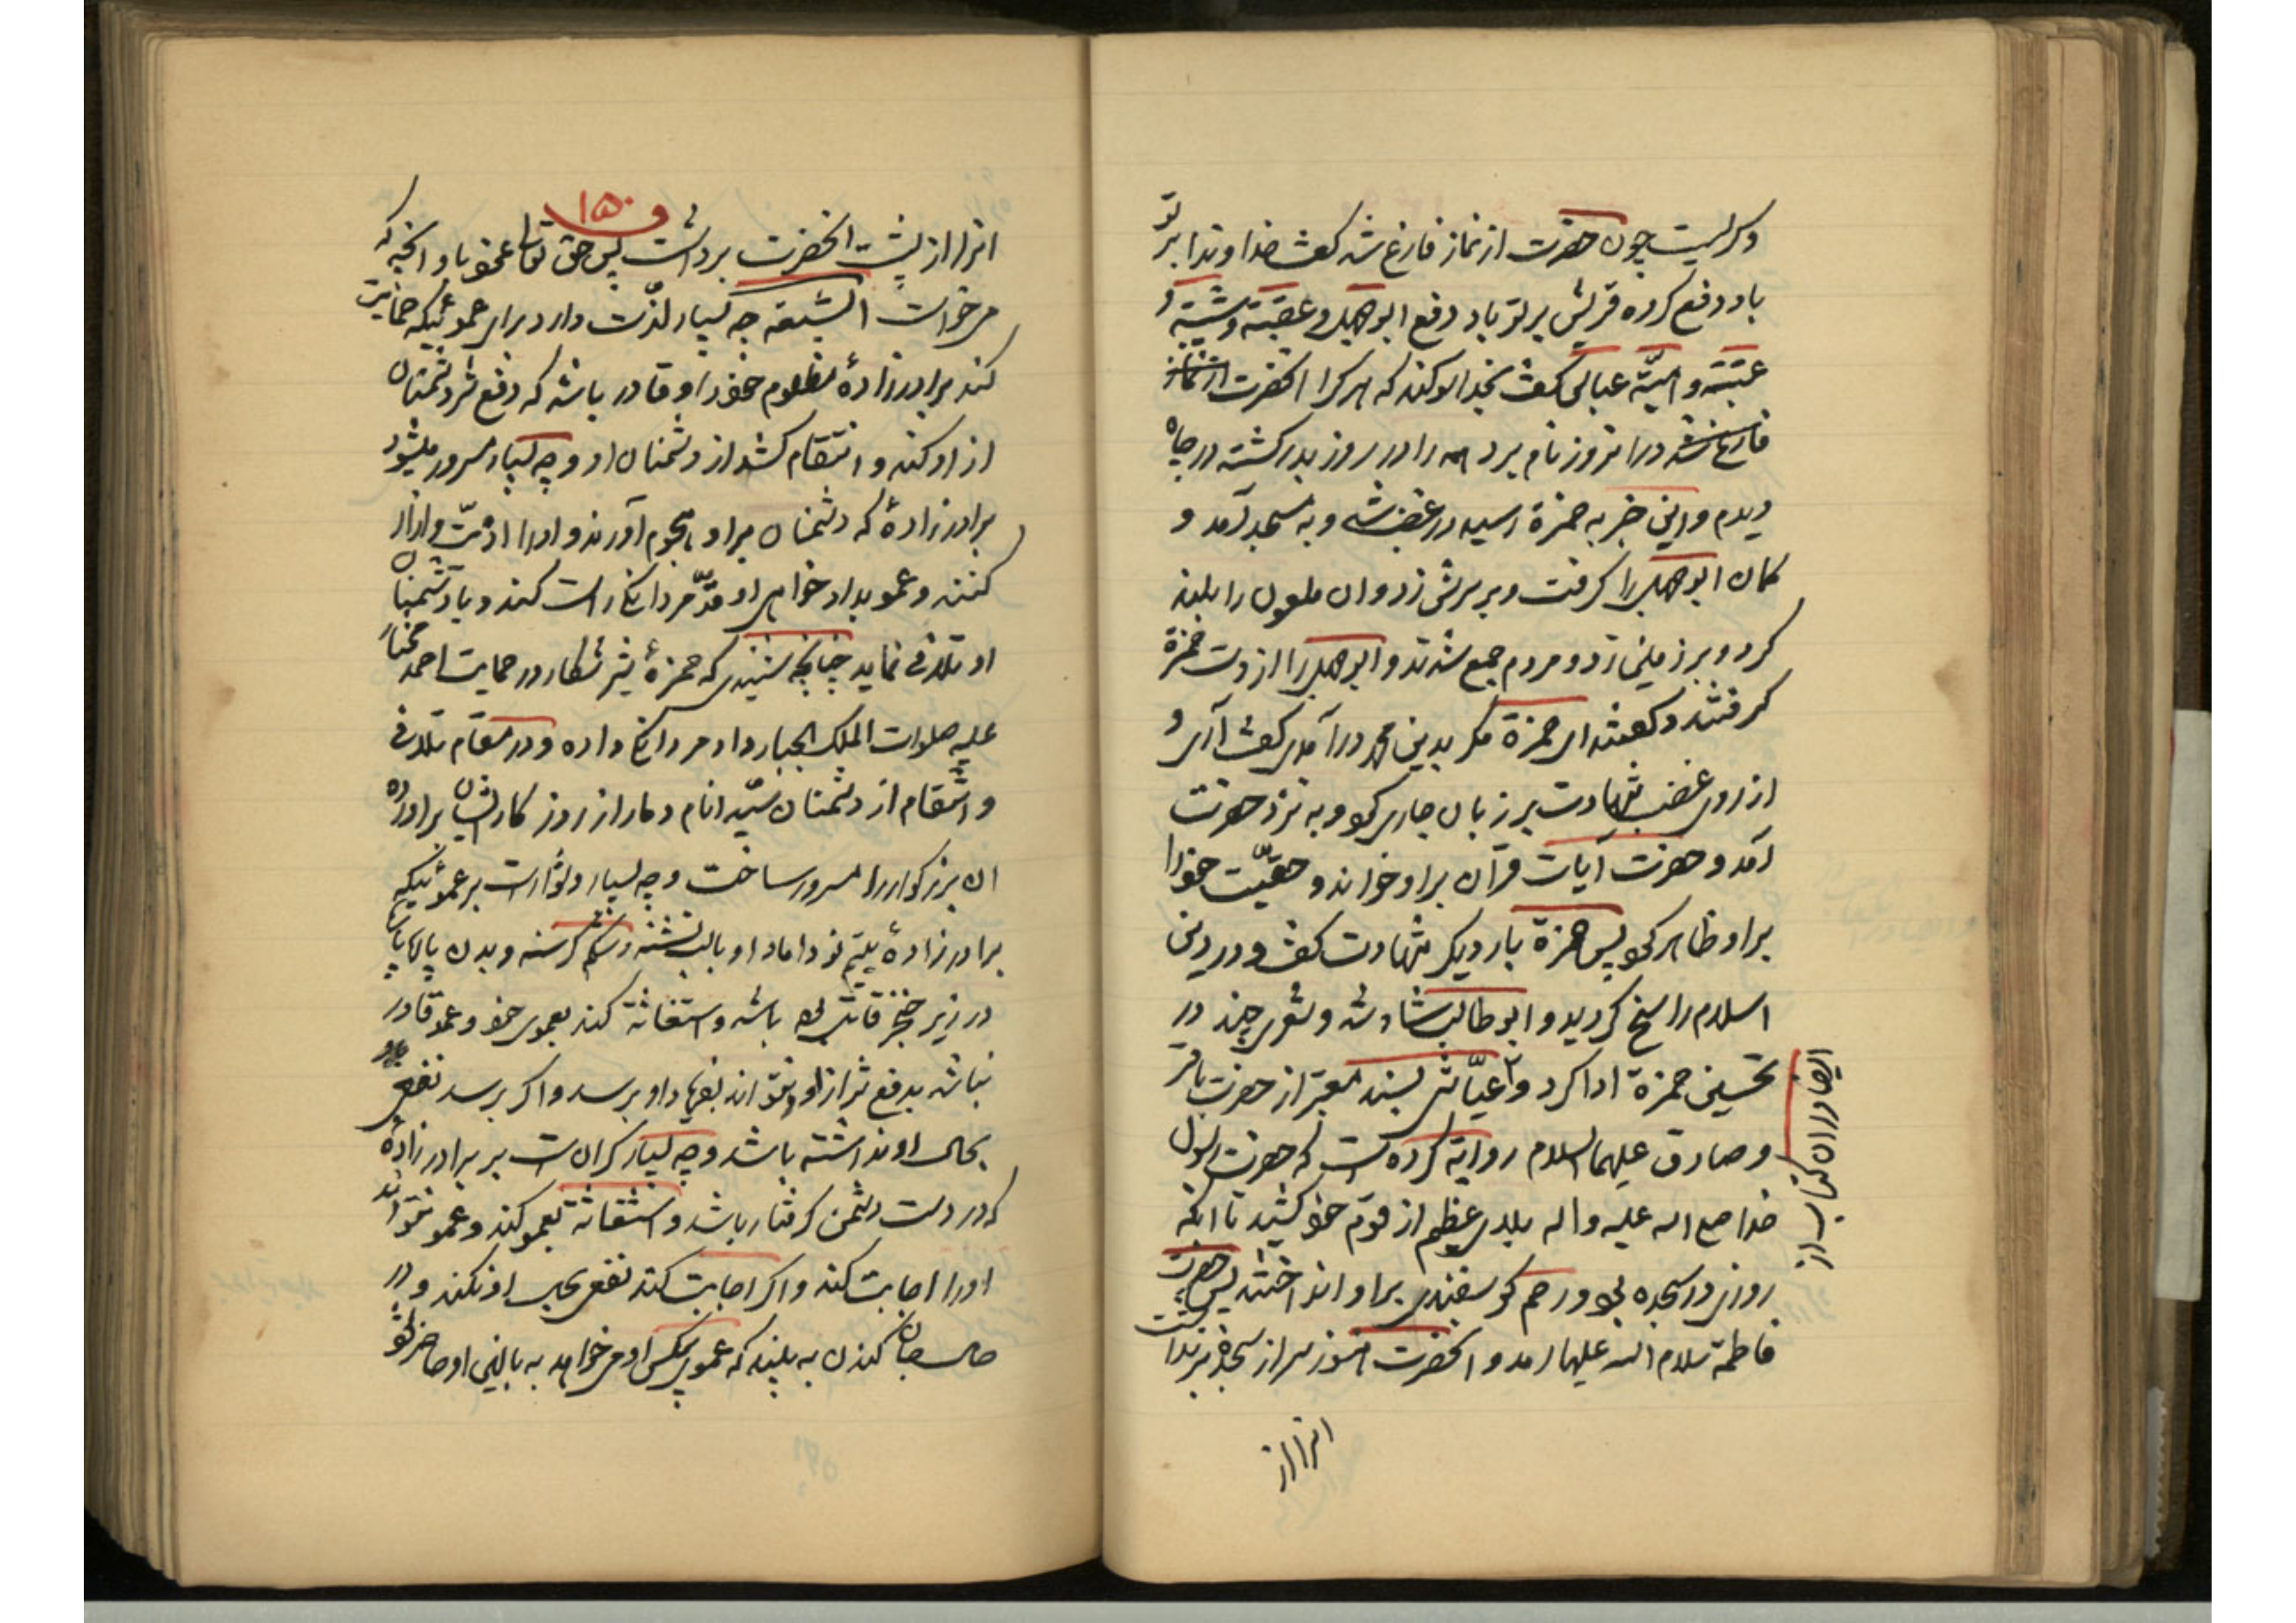 وگریست چون حضرت از نماز فارغ شد گفت خداوندا بر تو
باد دفع کروه قریش بر تو باد دفع ابوجهل و عقبة و شیبة و
عتبة و امیّة عباس گفت بخدا سوکند که هر کرا انحضرت از نماز
فارغ شد در انروز نام برد همه را در روز بدر کشته در چاه
دیدم و این خبر به حمزة رسید در غضب شد و به مسجد آمد و
کمان ابوجهل را گرفت و بر سرش زد و ان ملعون را بلند
کرد و بر زمین زد و مردم جمع شدند و ابوجهل را از دست حمزة
گرفتند و گفتند ای حمزة مگر بدین محمد در آمدی گفت آری و
از روی غضب شهادت بر زبان جاری کرد و به نزد حضرت
آمد و حضرت آیات قرآن بر او خواند و حقیّت خود را
بر او ظاهر کرد پس حمزة بار دیگر شهادت گفت و در دین
اسلام راسخ گردید و ابوطالب شاد شد و شعری چند در
تحسین حمزة ادا کرد و عیّاشی بسند معتبر از حضرت باقر
و صادق علیهما السلام روایة کرده است که حضرت رسول
خدا صلی الله علیه و اله بلای عظیم از قوم خود کشید تا انکه
روزی در سجده بود رحم گوسفندی بر او انداختند پس حضرت
فاطمة سلام الله علیها امد و انحضرت هنوز سر از سجده برنداشت
انرا از
ایضا در ان کتاب از
۱۵۰
انرا از پشت انحضرت برداشت پس حق تعالی عطا نمود باو انچه که
می خواست الشیعة چه بسیار لذّت دارد برای عموئیکه حمایت
کند برادرزادۀ مظلوم خود را و قادر باشد که دفع شر دشمنان
از او کند و انتقام کشد از دشمنان او و چه بسیار مسرور میشود
برادرزادۀ که دشمنان بر او هجوم آورند و او را اذیّت و ازار
کنند و عمو بداد خواهی او قدّ مردانگی راست کند و با دشمنان
او تلافی نماید چنانچه شنیدی که حمزۀ شیر شکار در حمایت احمد مختار
علیه صلوات الملک الجبار داد مردانگی داده و در مقام تلافی
و انتقام از دشمنان سیّد انام دمار از روز کار ایشان براورده
ان بزرکوار را مسرور ساخت و چه بسیار دشوار است بر عموئیکه
برادرزادۀ یتیم نو داماد او با لب تشنه و شکم گرسنه و بدن پاره پاره
در زیر خنجر قاتل بوده باشد و استغاثة کند بعموی خود و عمو قادر
نباشد بدفع شر از او و نتواند بفریاد او برسد و اگر برسد نفعی
بحال او نداشته باشد و چه بسیار گران است بر برادرزادۀ
که در دست دشمن گرفتار باشد و استغاثة بعمو کند و عمو نتواند
او را اجابت کند و اگر اجابت کند نفعی بحال او نکند و در
حالت جان کندن به بیند که عموی بیکس او می خواهد به بالین او حاضر شود